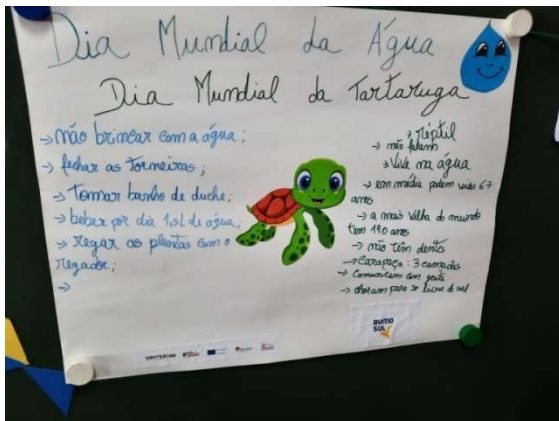 Dia Mundial da Água
Dia Mundial da Tartaruga
→ não brincar com a água;
→ fechar as torneiras;
→ Tomar banho de duche;
→ beber por dia 1,5L de água;
→ regar as plantas com o
regador;
→
→ réptil
→ não falam
→ Vive na água
→ em média podem viver 67
anos
→ a mais velha do mundo
tem 190 anos
→ não têm dentes
→ Carapaça: 3 camadas
→ Comunicam com
→ choram para se do sal
RUMO
SUL